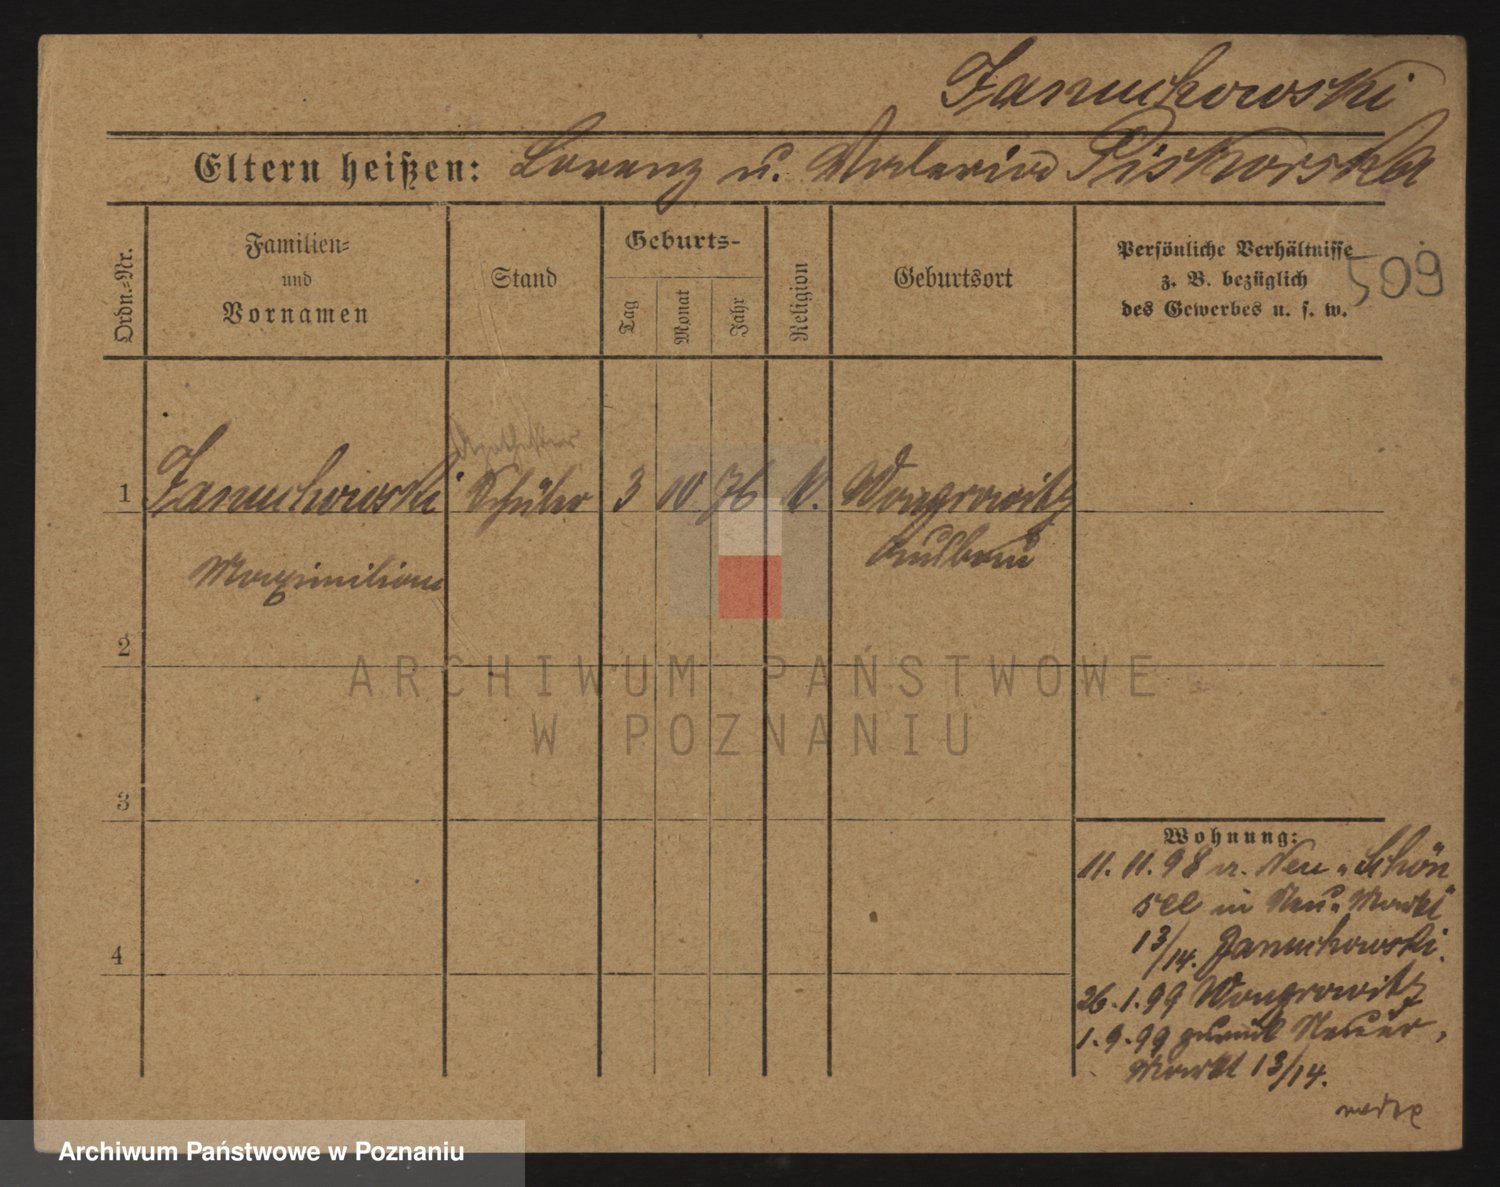 Januchowski
Eltern heißen: Lorenz u. Valeria Piskorska
Ordn.-Nr.
Familien-
und
Vornamen
Stand
Geburts-
Tag
Monat
Jahr
Religion
Geburtsort
Persönliche Verhältnisse
z. B. bezüglich
des Gewerbes u. s. w.
509
Apotheker
1 Januchowski Schüler 3 10 76 k. Wongrowitz
Maximilian
2
3
4
Wohnung:
11. 11. 98 v. Neu-Schön
see in Neu-Markt
13/14. Januchowski.
26. 1. 99 Wongrowitz
1. 9. 99 zurück Neuer-
Markt 13/14.
ARCHIWUM PAŃSTWOWE
W POZNANIU
Archiwum Państwowe w Poznaniu